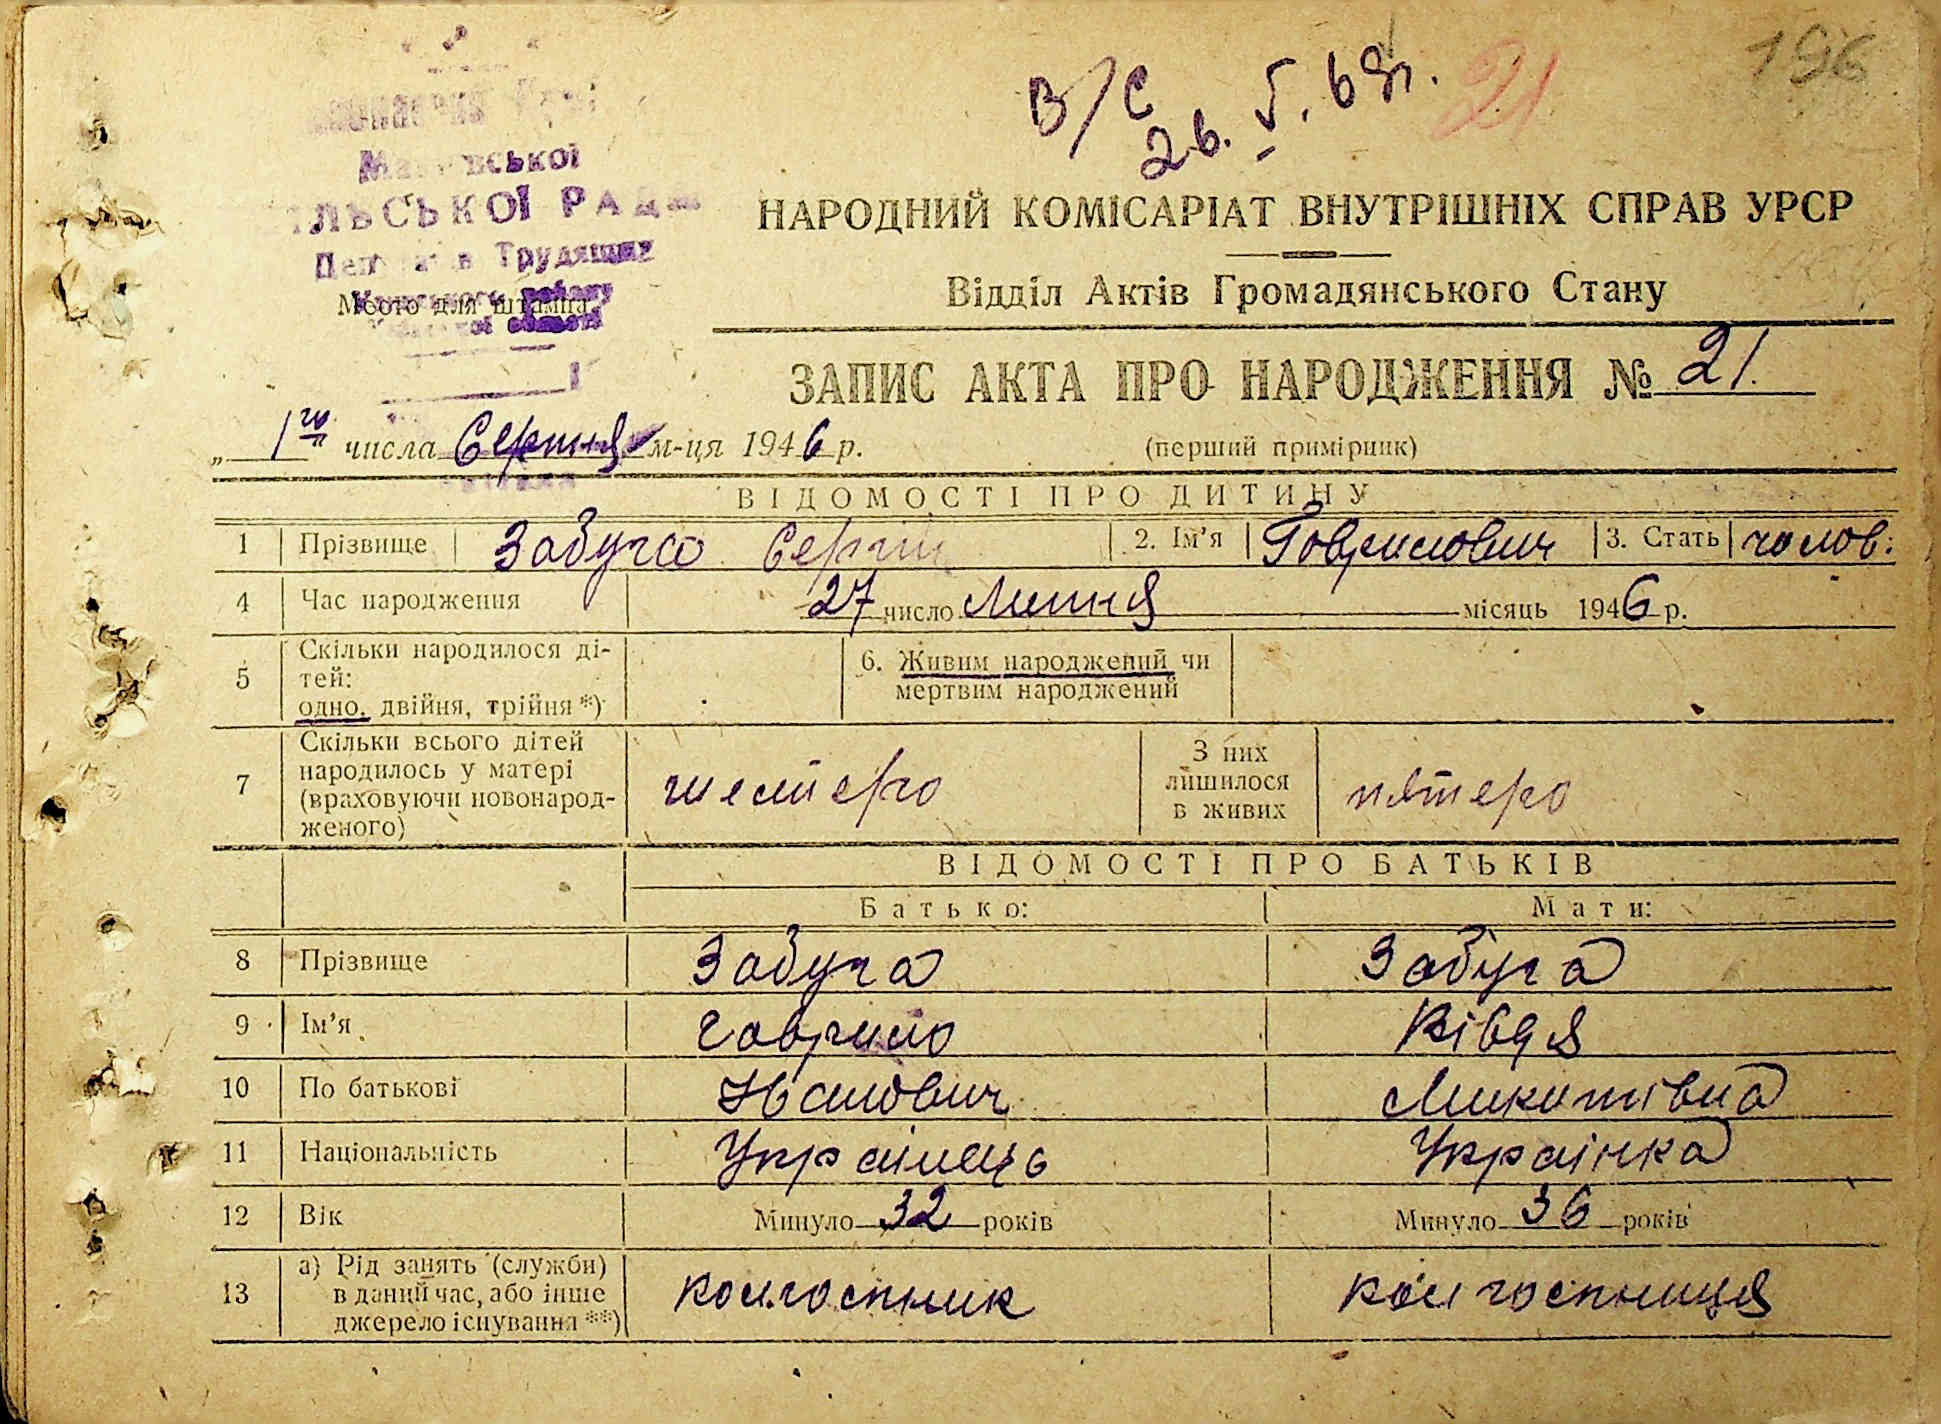 196
21
В/С
26. V. 69г.
Виконавчий
ської
СІЛЬСЬКОЇ РАДИ
Депутатів Трудящих
району
області
Место для штампа
НАРОДНИЙ КОМІСАРІАТ ВНУТРІШНІХ СПРАВ УРСР
Відділ Актів Громадянського Стану
ЗАПИС АКТА ПРО НАРОДЖЕННЯ № 21.
„ 1го " числа Серпня м-ця 1946 р. (перший примірник)
ВІДОМОСТІ ПРО ДИТИНУ
1 Прізвище Забуга Сергій 2. Ім'я Гаврилович 3. Стать чолов.
4 Час народження 27 число Липня місяць 1946 р.
5 Скільки народилося ді-
тей:
одно, двійня, трійня *)
6. Живим народжений чи
мертвим народжений
7 Скільки всього дітей
народилось у матері
(враховуючи новонарод-
женого)
шестеро
З них
лишилося
в живих
пятеро
ВІДОМОСТІ ПРО БАТЬКІВ
Батько: Мати:
8 Прізвище Забуга Забуга
9 Ім'я Гаврило Вівдя
10 По батькові Іванович Микитівна
11 Національність Українець Українка
12 Вік Минуло 32 років Минуло 36 років
13 а) Рід занять (служби)
в даний час, або інше
джерело існування **)
колгоспник колгоспниця